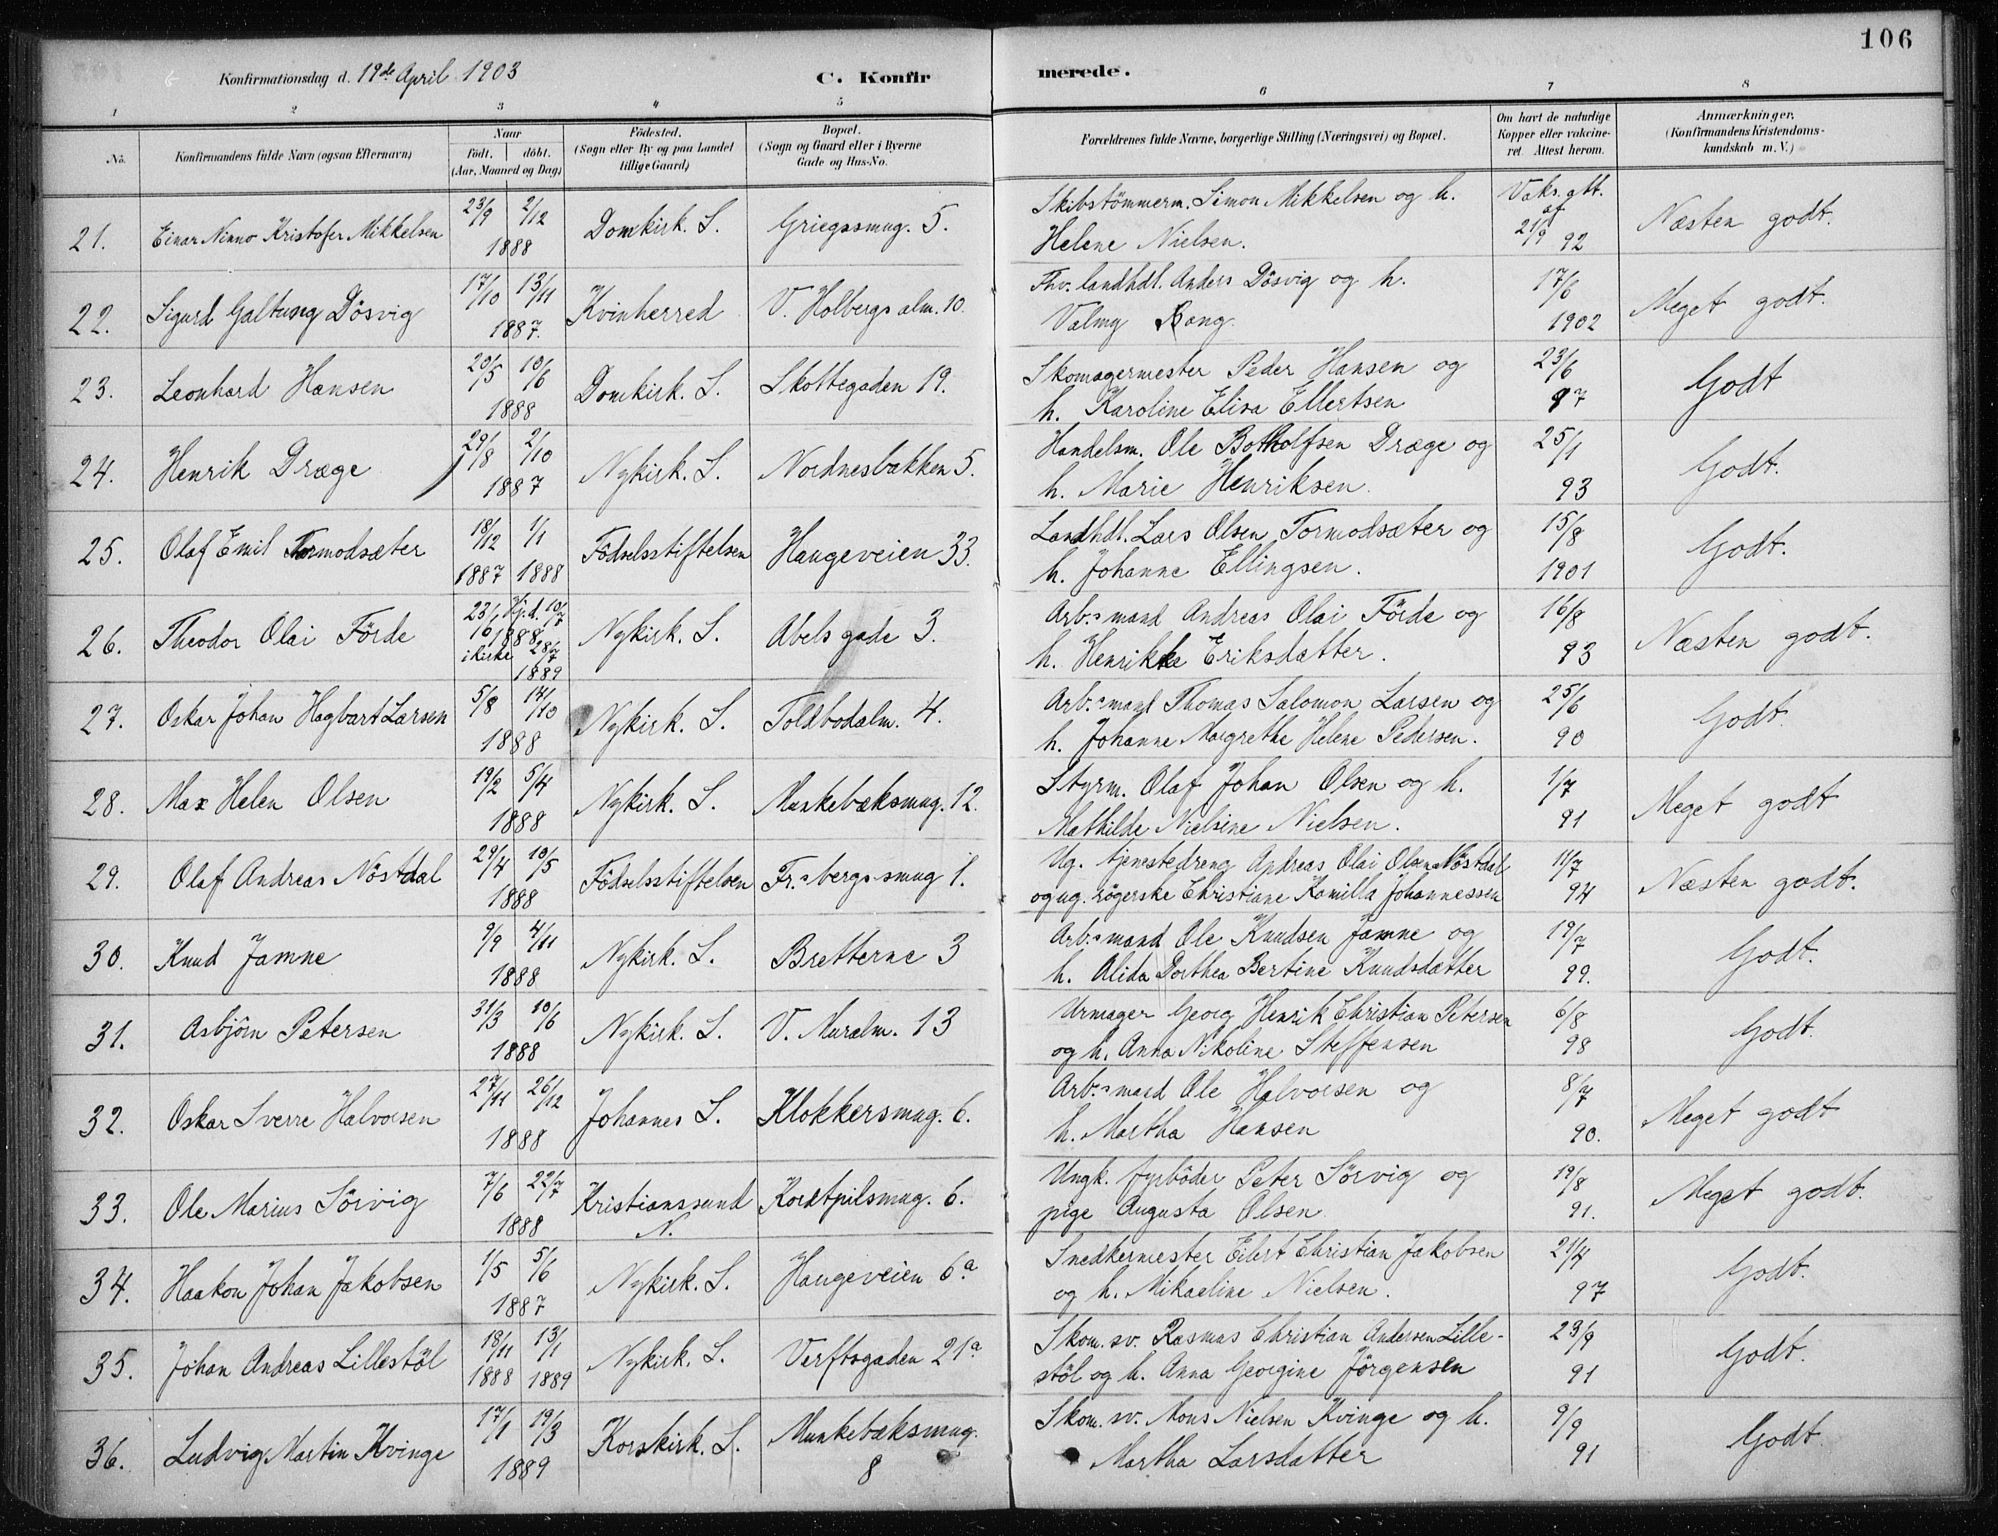 106
Konfirmationsdag d. 19de April 1903
C. Konfirmerede.
1 2 3 4 5 6 7 8
No. Konfirmandens fulde Navn (ogsaa Efternavn) Naar födt. döbt. (Aar, Maaned og Dag) Födested. (Sogn eller By og paa Landet tillige Gaard) Bopæl. (Sogn og Gaard eller i Byerne Gade og Hus-No. Forældrenes fulde Navne, borgerlige Stilling (Næringsvei) og Bopæl. Om havt de naturlige Kopper eller vakcineret. Attest herom. Anmærkninger. (Konfirmandens Kristendomskundskab m. V.)
21. Einar Ninno Kristofer Mikkelsen 23/9 2/12 1888 Domkirk. S. Griegssmug. 5. Skibstömmerm. Simon Mikkelsen og h.
Helene Nielsen. Vaks. att. af 21/9 92 Næsten godt.
22. Sigurd Galtung Dösvig 17/10 13/11 1887. Kvinherred V. Holbergs alm. 10. Fhv. landhdl. Anders Dösvig og h.
Valmy Rong. 17/6 1902 Meget godt.
23. Leonhard Hansen 20/5 10/6 1888 Domkirk. S. Skottegaden 19. Skomagermester Peder Hansen og
h. Karoline Elisa Ellertsen 23/6 97 Godt
24. Henrik Dræge 29/8 2/10 1887 Nykirk. S. Nordnesbakken 5. Handelsm. Ole Botholfsen Dræge og
h. Marie Henriksen. 25/1 93 Godt.
25. Olaf Emil Tormodsæter 18/12 1887 1/1 1888 Födselsstiftelsen Haugeveien 33. Landhdl. Lars Olsen Tormodsæter og
h. Johanne Ellingsen. 15/8 1901 Godt.
26. Theodor Olai Förde 23/10 Hj.d. 10/7 1888 i Kirke 28/7 1889 Nykirk. S. Abels gade 3. Arb.smand Andreas Olai Förde og
h. Henrikke Eriksdatter. 16/8 93 Næsten godt.
27. Oskar Johan Hagbart Larsen 5/8 14/10 1888 Nykirk. S. Toldbodalm. 4. Arb.smand Thomas Salomon Larsen og
h. Johanne Margrethe Helene Pedersen. 25/6 90 Godt.
28. Max Helen Olsen 19/2 5/4 1888 Nykirk. S. Munkebæksmug. 12. Styrm. Olaf Johan Olsen og h.
Mathilde Nielsine Nielsen. 1/7 91 Meget godt
29. Olaf Andreas Nöstdal 29/4 10/5 1888 Födselsstiftelsen Fr.sbergssmug 1. Ug. tjenestedreng Andreas Olai Olsen Nöstdal
og ug. rögerske Christiane Kamilla Johannessen 11/7 94 Næsten godt.
30. Knud Jamne 9/9 4/11 1888 Nykirk. S. Bretterne 3 Arb.smand Ole Knudsen Jamne og
h. Alida Dorthea Bertine Knudsdatter 19/7 99. Godt.
31. Asbjörn Petersen 31/3 10/6 1888 Nykirk. S. V. Muralm. 13 Urmager Georg Henrik Christian Petersen
og h. Anna Nikoline Steffensen 6/8 98 Godt.
32. Oskar Sverre Halvorsen 27/11 26/12 1888 Johannes S. Klokkersmug. 6. Arb.smand Ole Halvorsen og
h. Martha Hansen 8/7 90. Meget godt
33. Ole Marius Sörvig 7/6 22/7 1888 Kristianssund N. Korstpilsmug. 6. Ungk. fyrböder Peter Sörvig og
pige Augusta Olsen. 19/8 91. Meget godt.
34. Haakon Johan Jakobsen 1/5 5/6 1887 Nykirk. S. Haugeveien 6a Snedkermester Eilert Christian Jakobsen
og h. Mikaeline Nielsen. 21/4 97 Godt.
35. Johan Andreas Lillestöl 18/11 1888 13/1 1889 Nykirk. S. Verftsgaden 21a. Skom. sv. Rasmus Christian Andersen Lille-
stöl og h. Anna Georgine Jörgensen 23/9 91 Godt.
36. Ludvig Martin Kvinge 17/1 19/3 1889 Korskirk. S. Munkebæksmug. 8 Skom. sv. Mons Nielsen Kvinge og h.
Martha Larsdatter 9/9 91 Godt.